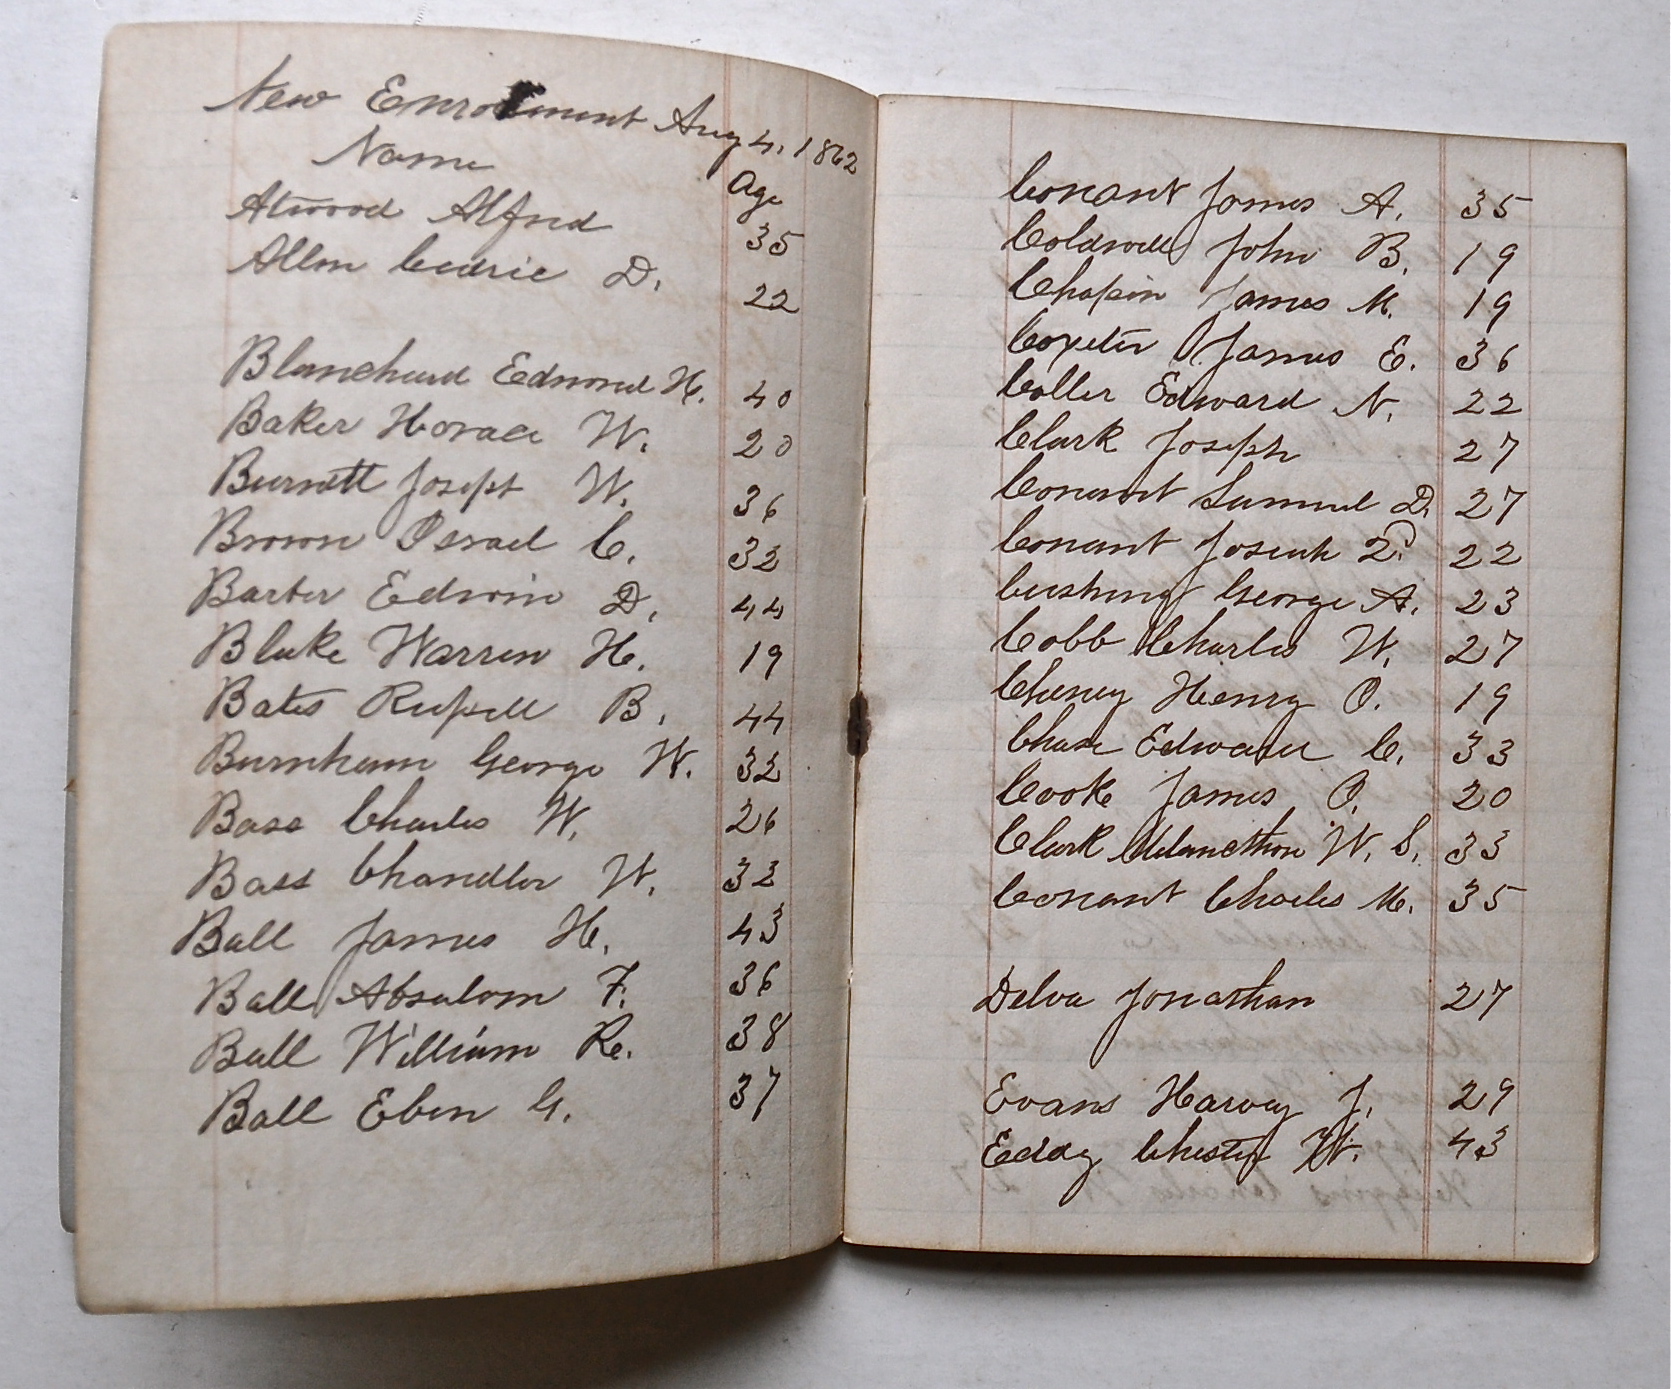 New Enrollment Aug 4, 1862
Name Age
Atwood Alfred 35
Allen Cedric D. 22
Blanchard Edmond H. 40
Baker Horace W. 20
Burnett Joseph W. 36
Brown Israel C. 32
Barber Edwin D. 44
Blake Warren H. 19
Bates Russell B. 44
Burnham George W. 32
Bass Charles W. 26
Bass Chandler W. 32
Ball James H. 43
Ball Absalom F. 36
Ball William R. 38
Ball Eben G. 37
Conant James A. 35
Coldwell John B. 19
Chapin James M. 19
James E. 36
Coller Edward N. 22
Clark Joseph 27
Conant Samuel D. 27
Conant Josiah 22
Cushing George A. 23
Cobb Charles W. 27
Cheney Henry O. 19
Chase Edward C. 33
Cooke James O. 20
Clark Melancthon W. S. 33
Conant Charles M. 35
Delva Jonathan 27
Evans Harvey J. 29
Eddy Chester W. 43